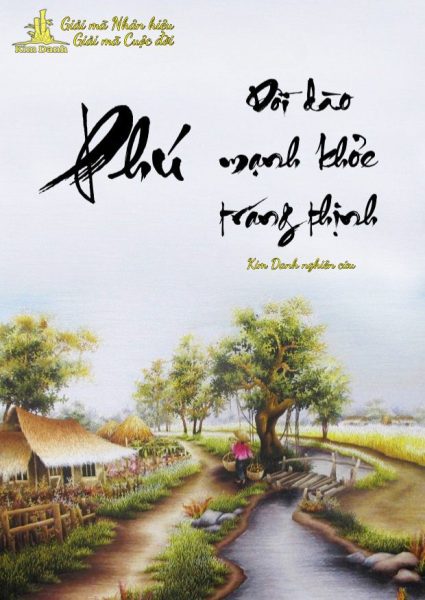 Giải mã Nhãn hiệu
Giải mã Cuộc đời
Kim Danh
Phú
Dồi dào
mạnh khỏe
tráng thịnh
Kim Danh nghiên cứu